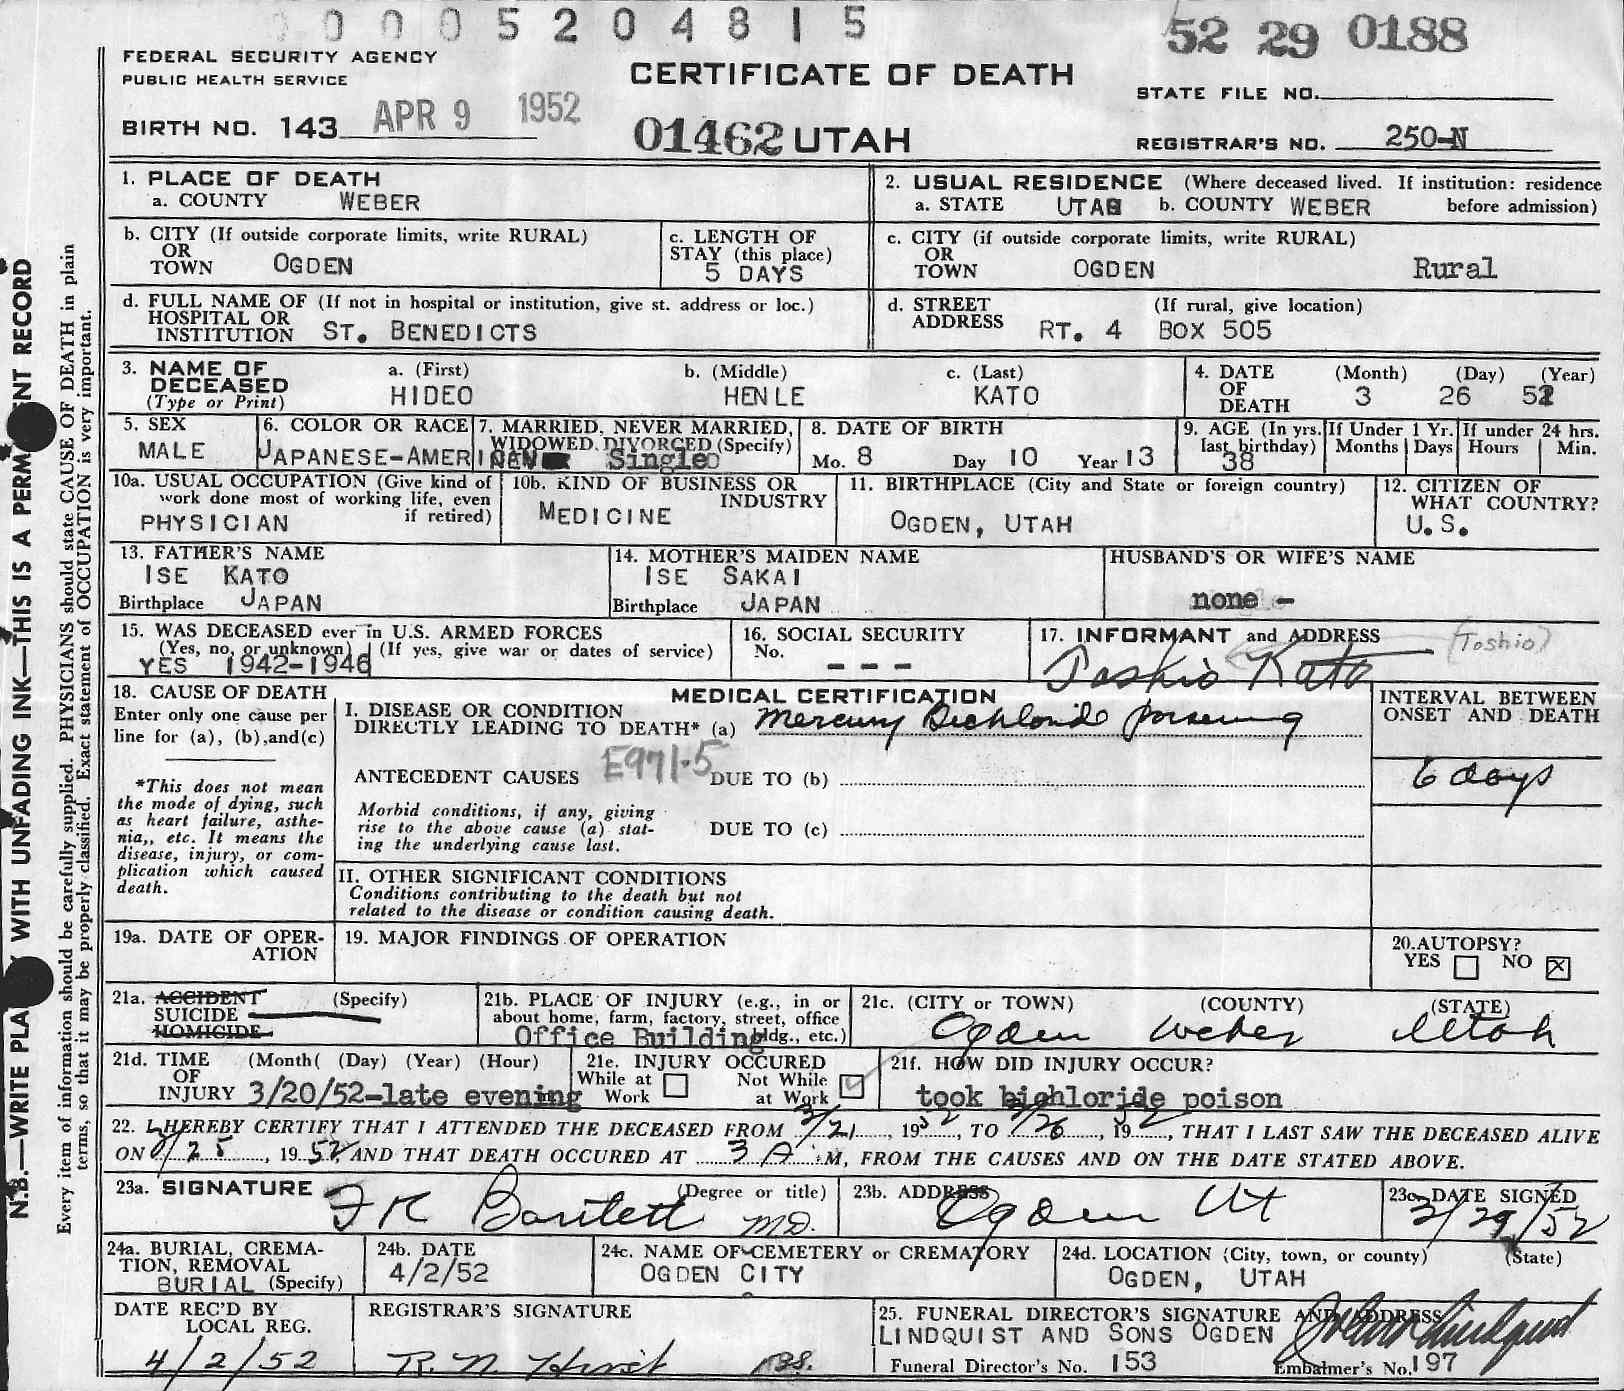 0 0 0 5 2 0 4 8 1 5
52 29 0188
FEDERAL SECURITY AGENCY
PUBLIC HEALTH SERVICE
CERTIFICATE OF DEATH
STATE FILE NO.
BIRTH NO. 143 APR 9 1952
01462 UTAH
REGISTRAR'S NO. 250-N
1. PLACE OF DEATH
a. COUNTY WEBER
2. USUAL RESIDENCE (Where deceased lived. If institution: residence before admission)
a. STATE UTAH b. COUNTY WEBER
b. CITY (If outside corporate limits, write RURAL)
OR
TOWN OGDEN
c. LENGTH OF
STAY (this place)
5 DAYS
c. CITY (if outside corporate limits, write RURAL)
OR
TOWN OGDEN Rural
d. FULL NAME OF (If not in hospital or institution, give st. address or loc.)
HOSPITAL OR
INSTITUTION ST. BENEDICTS
d. STREET (If rural, give location)
ADDRESS RT. 4 BOX 505
3. NAME OF
DECEASED
(Type or Print)
a. (First)
HIDEO
b. (Middle)
HENLE
c. (Last)
KATO
4. DATE
OF
DEATH
(Month) (Day) (Year)
3 26 52
5. SEX
MALE
6. COLOR OR RACE
JAPANESE-AMERICAN
7. MARRIED, NEVER MARRIED,
WIDOWED, DIVORCED (Specify)
Single
8. DATE OF BIRTH
Mo. 8 Day 10 Year 13
9. AGE (In yrs.
last birthday)
38
If Under 1 Yr.
Months Days
If under 24 hrs.
Hours Min.
10a. USUAL OCCUPATION (Give kind of
work done most of working life, even
if retired)
PHYSICIAN
10b. KIND OF BUSINESS OR
INDUSTRY
MEDICINE
11. BIRTHPLACE (City and State or foreign country)
OGDEN, UTAH
12. CITIZEN OF
WHAT COUNTRY?
U.S.
13. FATHER'S NAME
ISE KATO
Birthplace JAPAN
14. MOTHER'S MAIDEN NAME
ISE SAKAI
Birthplace JAPAN
HUSBAND'S OR WIFE'S NAME
none -
15. WAS DECEASED ever in U.S. ARMED FORCES
(Yes, no, or unknown) (If yes, give war or dates of service)
YES 1942-1946
16. SOCIAL SECURITY
No.
- - -
17. INFORMANT and ADDRESS
(Toshio)
Toshio Kato
18. CAUSE OF DEATH
Enter only one cause per
line for (a), (b),and(c)
*This does not mean
the mode of dying, such
as heart failure, asthe-
nia,, etc. It means the
disease, injury, or com-
plication which caused
death.
MEDICAL CERTIFICATION
I. DISEASE OR CONDITION
DIRECTLY LEADING TO DEATH* (a) Mercury Bichloride poisoning
E971.5
ANTECEDENT CAUSES DUE TO (b)
Morbid conditions, if any, giving
rise to the above cause (a) stat-
ing the underlying cause last.
DUE TO (c)
II. OTHER SIGNIFICANT CONDITIONS
Conditions contributing to the death but not
related to the disease or condition causing death.
INTERVAL BETWEEN
ONSET AND DEATH
6 days
19a. DATE OF OPER-
ATION
19. MAJOR FINDINGS OF OPERATION
20.AUTOPSY?
YES NO
21a. ACCIDENT (Specify)
SUICIDE
HOMICIDE
21b. PLACE OF INJURY (e.g., in or
about home, farm, factory, street, office
bldg., etc.)
Office Building
21c. (CITY or TOWN) (COUNTY) (STATE)
Ogden Weber Utah
21d. TIME (Month( (Day) (Year) (Hour)
OF
INJURY 3/20/52-late evening
21e. INJURY OCCURED
While at Work Not While at Work
21f. HOW DID INJURY OCCUR?
took bichloride poison
22. I HEREBY CERTIFY THAT I ATTENDED THE DECEASED FROM 3/21, 1952, TO 3/26, 1952, THAT I LAST SAW THE DECEASED ALIVE
ON 3/25, 1952, AND THAT DEATH OCCURED AT 3 A.M, FROM THE CAUSES AND ON THE DATE STATED ABOVE.
23a. SIGNATURE (Degree or title)
F K Bartlett M.D.
23b. ADDRESS
Ogden Ut
23c. DATE SIGNED
3/29/52
24a. BURIAL, CREMA-
TION, REMOVAL
BURIAL (Specify)
24b. DATE
4/2/52
24c. NAME OF CEMETERY or CREMATORY
OGDEN CITY
24d. LOCATION (City, town, or county) (State)
OGDEN, UTAH
DATE REC'D BY
LOCAL REG.
4/2/52
REGISTRAR'S SIGNATURE
R. N. Hirst
25. FUNERAL DIRECTOR'S SIGNATURE AND ADDRESS
LINDQUIST AND SONS OGDEN
Funeral Director's No. 153 Embalmer's No. 197
N.B.—WRITE PLA WITH UNFADING INK—THIS IS A PERM ENT RECORD
Every item of information should be carefully supplied. PHYSICIANS should state CAUSE OF DEATH in plain
terms, so that it may be properly classified. Exact statement of OCCUPATION is very important.